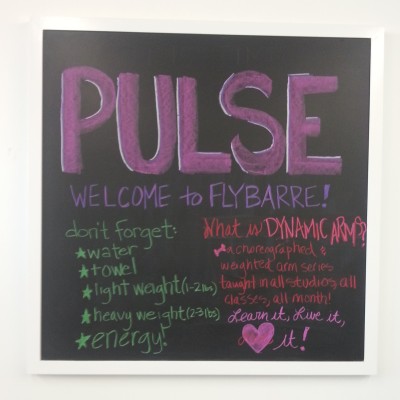 PULSE
WELCOME to FLYBARRE!
don't forget:
★water
★towel
★light weight (1-2 lbs)
★heavy weight (2-3 lbs)
★energy!
What is DYNAMIC ARMS?
★a choreographed &
weighted arm series
taught in all studios, all
classes, all month!
Learn it, Live it,
♥ it!